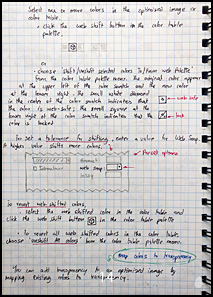 Select one or more colors in the optimized image or
color table
• click the web shift button in the color table
palette.
or
• choose shift/unshift selected colors to/from web palette
from the color table palette menu. the original color appear
at the upper left of the color swatch and the new color
at the lower right. the small white diamond
in the center of the color swatch indicates that
the color is web-safe; the small square at the
lower right of the color swatch indicates that the
color is locked
web safe
lock
To set a tolerance for shifting, enter a value for web snap.
A higher value shifts more colors.
Preset options
web snap
To unshift web shifted colors:
- select the web shifted color in the color table and
click the web shift button in the color table palette
• To unshift all web shifted colors in the color table,
choose unshift all colors from the color table palette menu.
map colors to transparency
You can add transparency to an optimized image by
mapping existing colors to transparency.